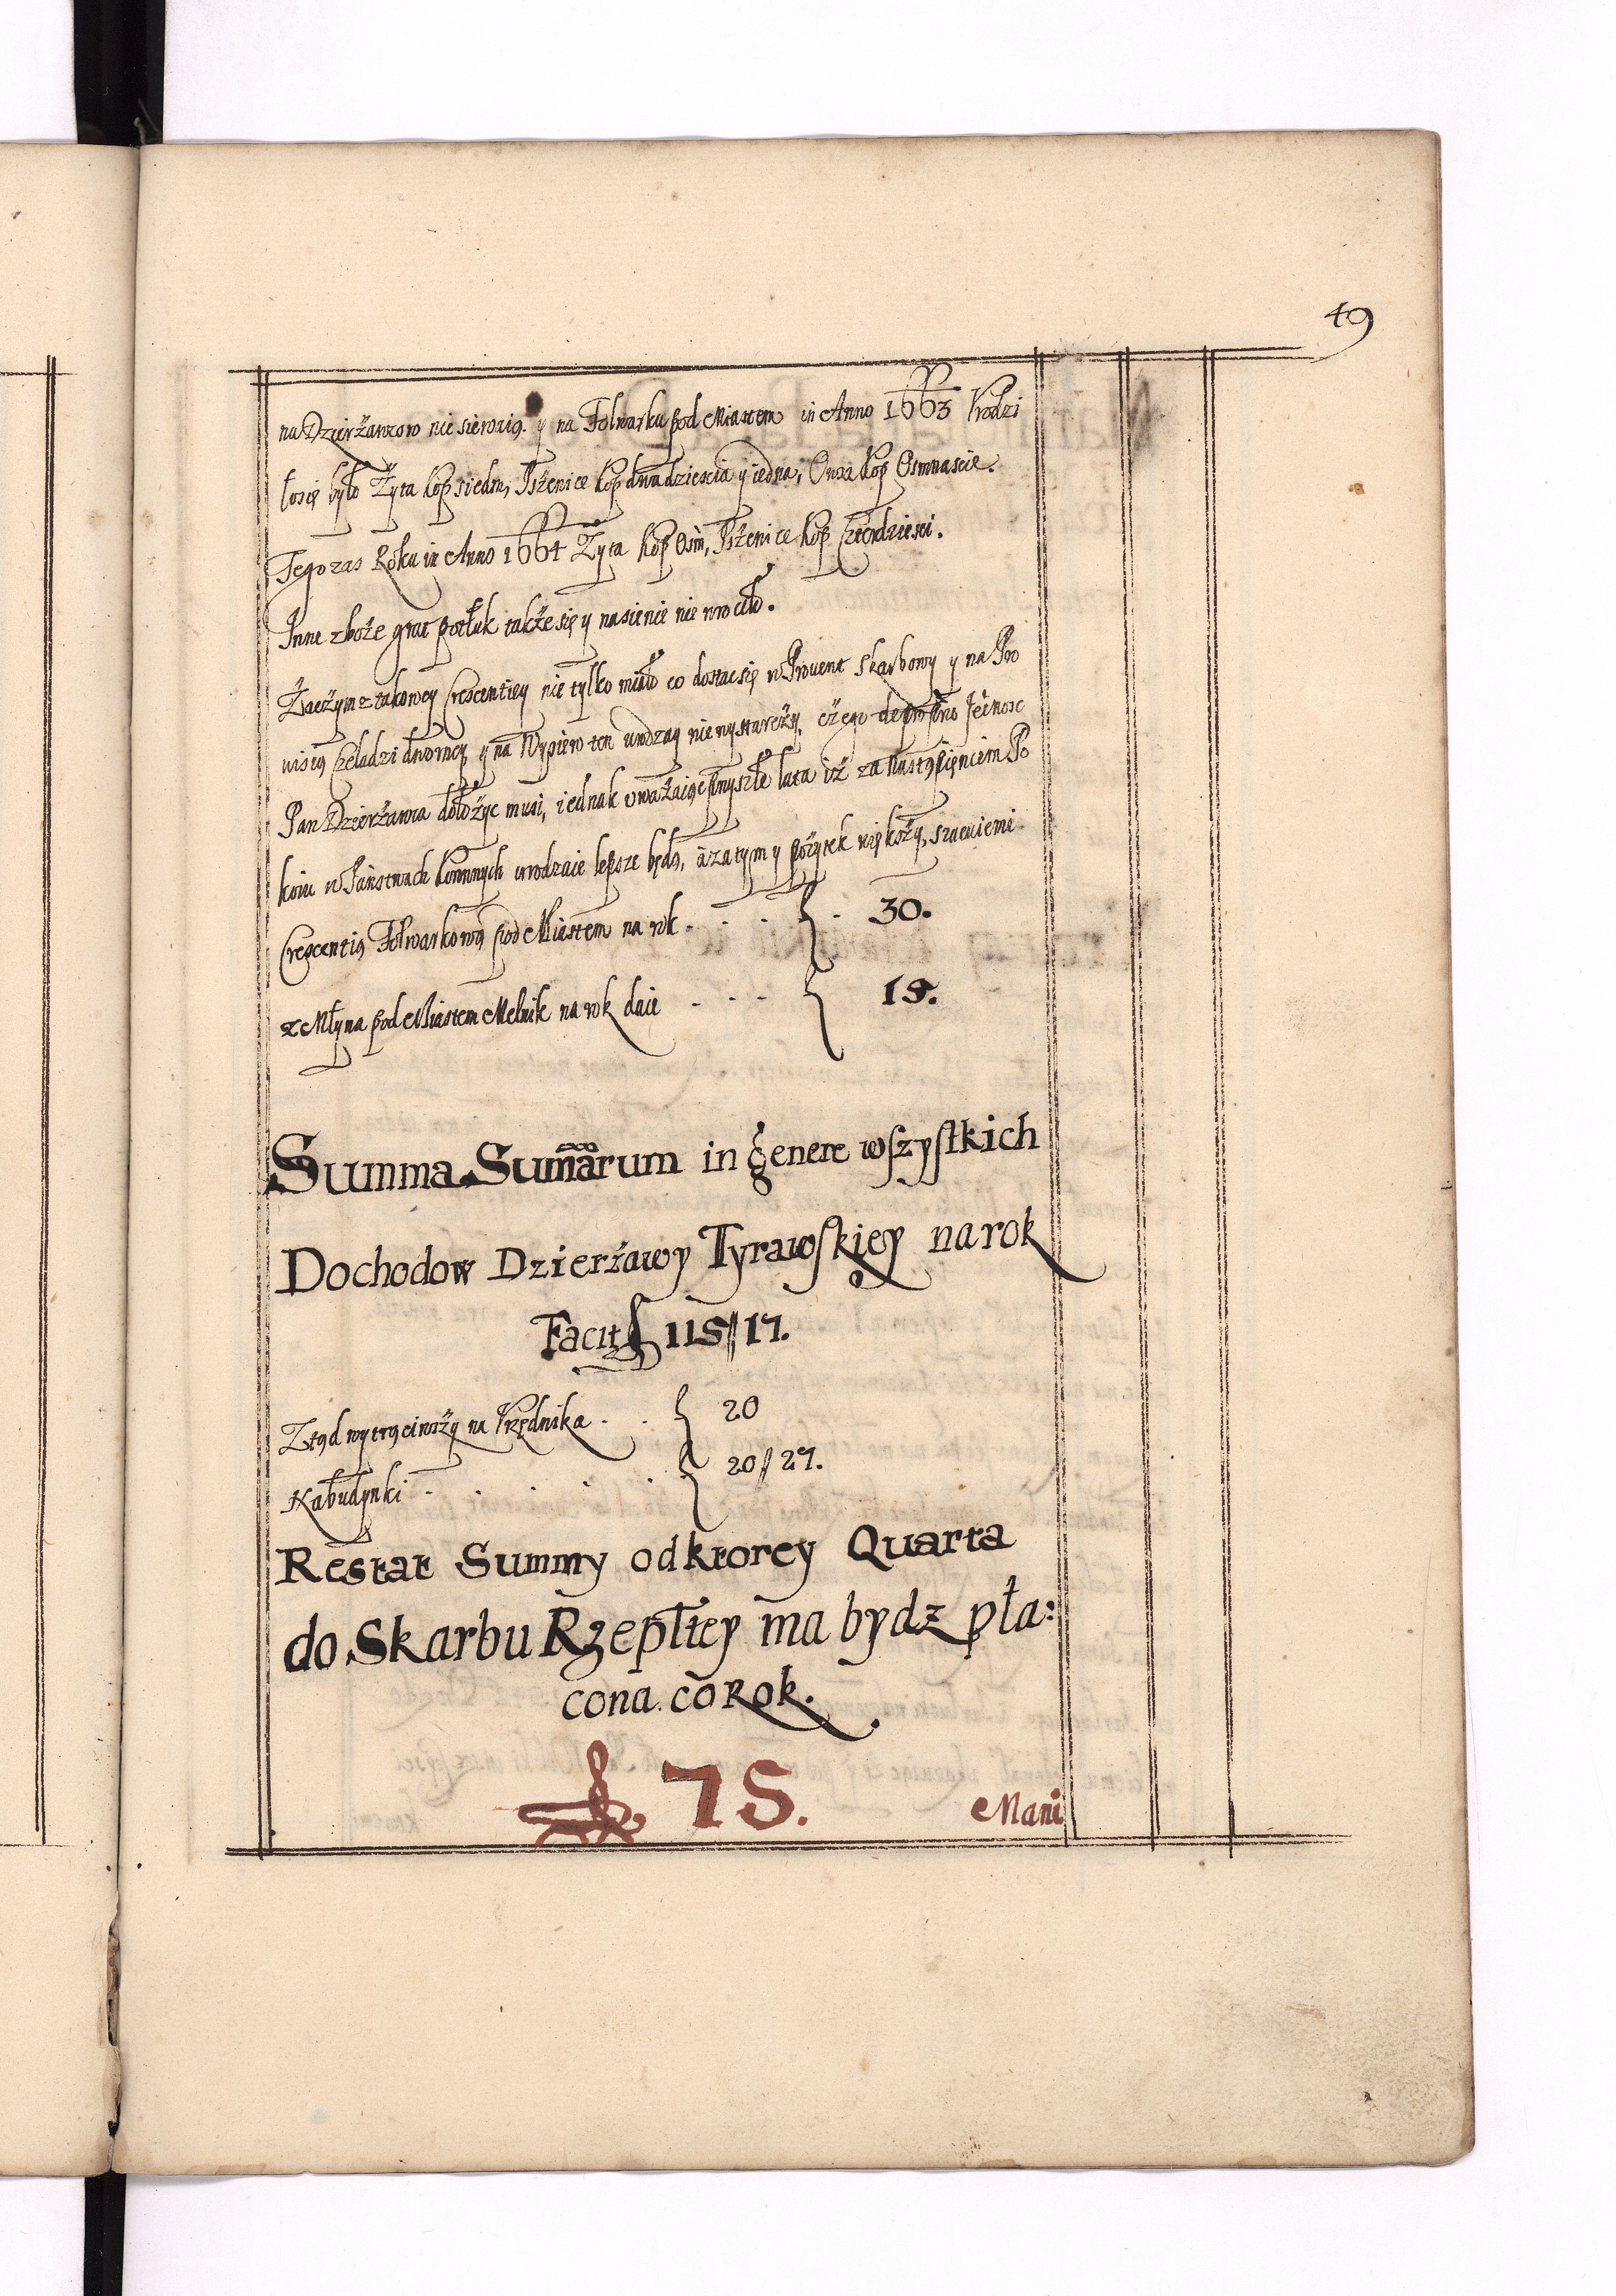 49
na Dzierżawcow nie siewaią. y na Folwarku pod Miastem in Anno 1663 Vrodzi
łosię było Żyta kop siedm, Pszenice kop dwadziescia y iedna, Owsa kop Osmnascie.
Tego zas Roku in Anno 1664 Żyta kop Osm, Pszenice kop Czterdziesci.
Inne zboże grat potłuk także się y nasienie nie wrociło.
Zaczym z takowey Crescentiey nie tylko miało co dostac się w Prouent Skarbowy y na Pro
uisią Czeladzi dworney y na Wysiew ten urodzay nie wystarczy, czego Jegomosc
Pan Dzierżawca dołożyc musi, iednak uważaiąc przyszłe lata iż za nastąpięniem Po
koiu w Państwach Koronnych urodzaie lepsze będą, a zatym y pożytek większy, szacuiemi
Crescentią Folwarkową pod Miastem na rok . . . . 30.
z Młyna pod Miastem Melnik na rok daie - - - 15.
Summa Summarum in genere wszystkich
Dochodow Dzierżawy Tyrawskiey na rok
Facit 115//17.
Ztąd wytrąciwszy na Vrzędnika . . 20
Na budynki . . . . . 20//27.
Restat Summy od ktorey Quarta
do Skarbu Rzepltey ma bydz pła:
cona co Rok.
75.
Mani